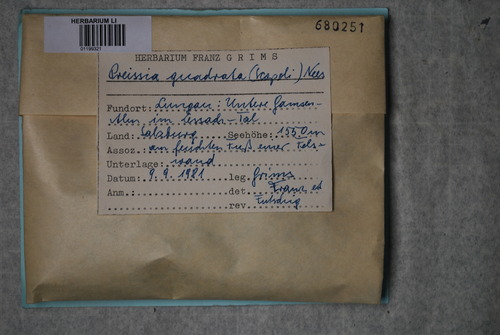 HERBARIUM LI
01199321
680251
HERBARIUM FRANZ GRIMS
Preissia quadrata (Scopoli) Nees
Fundort: Lungau: Untere Gamsen-
Land: Salzburg Seehöhe: 1550 m
Assoz. am feuchten Fuß einer Fels-
Unterlage: wand
Datum: 9.9.1981 leg. Grims
Anm.: det. Franz et
rev.